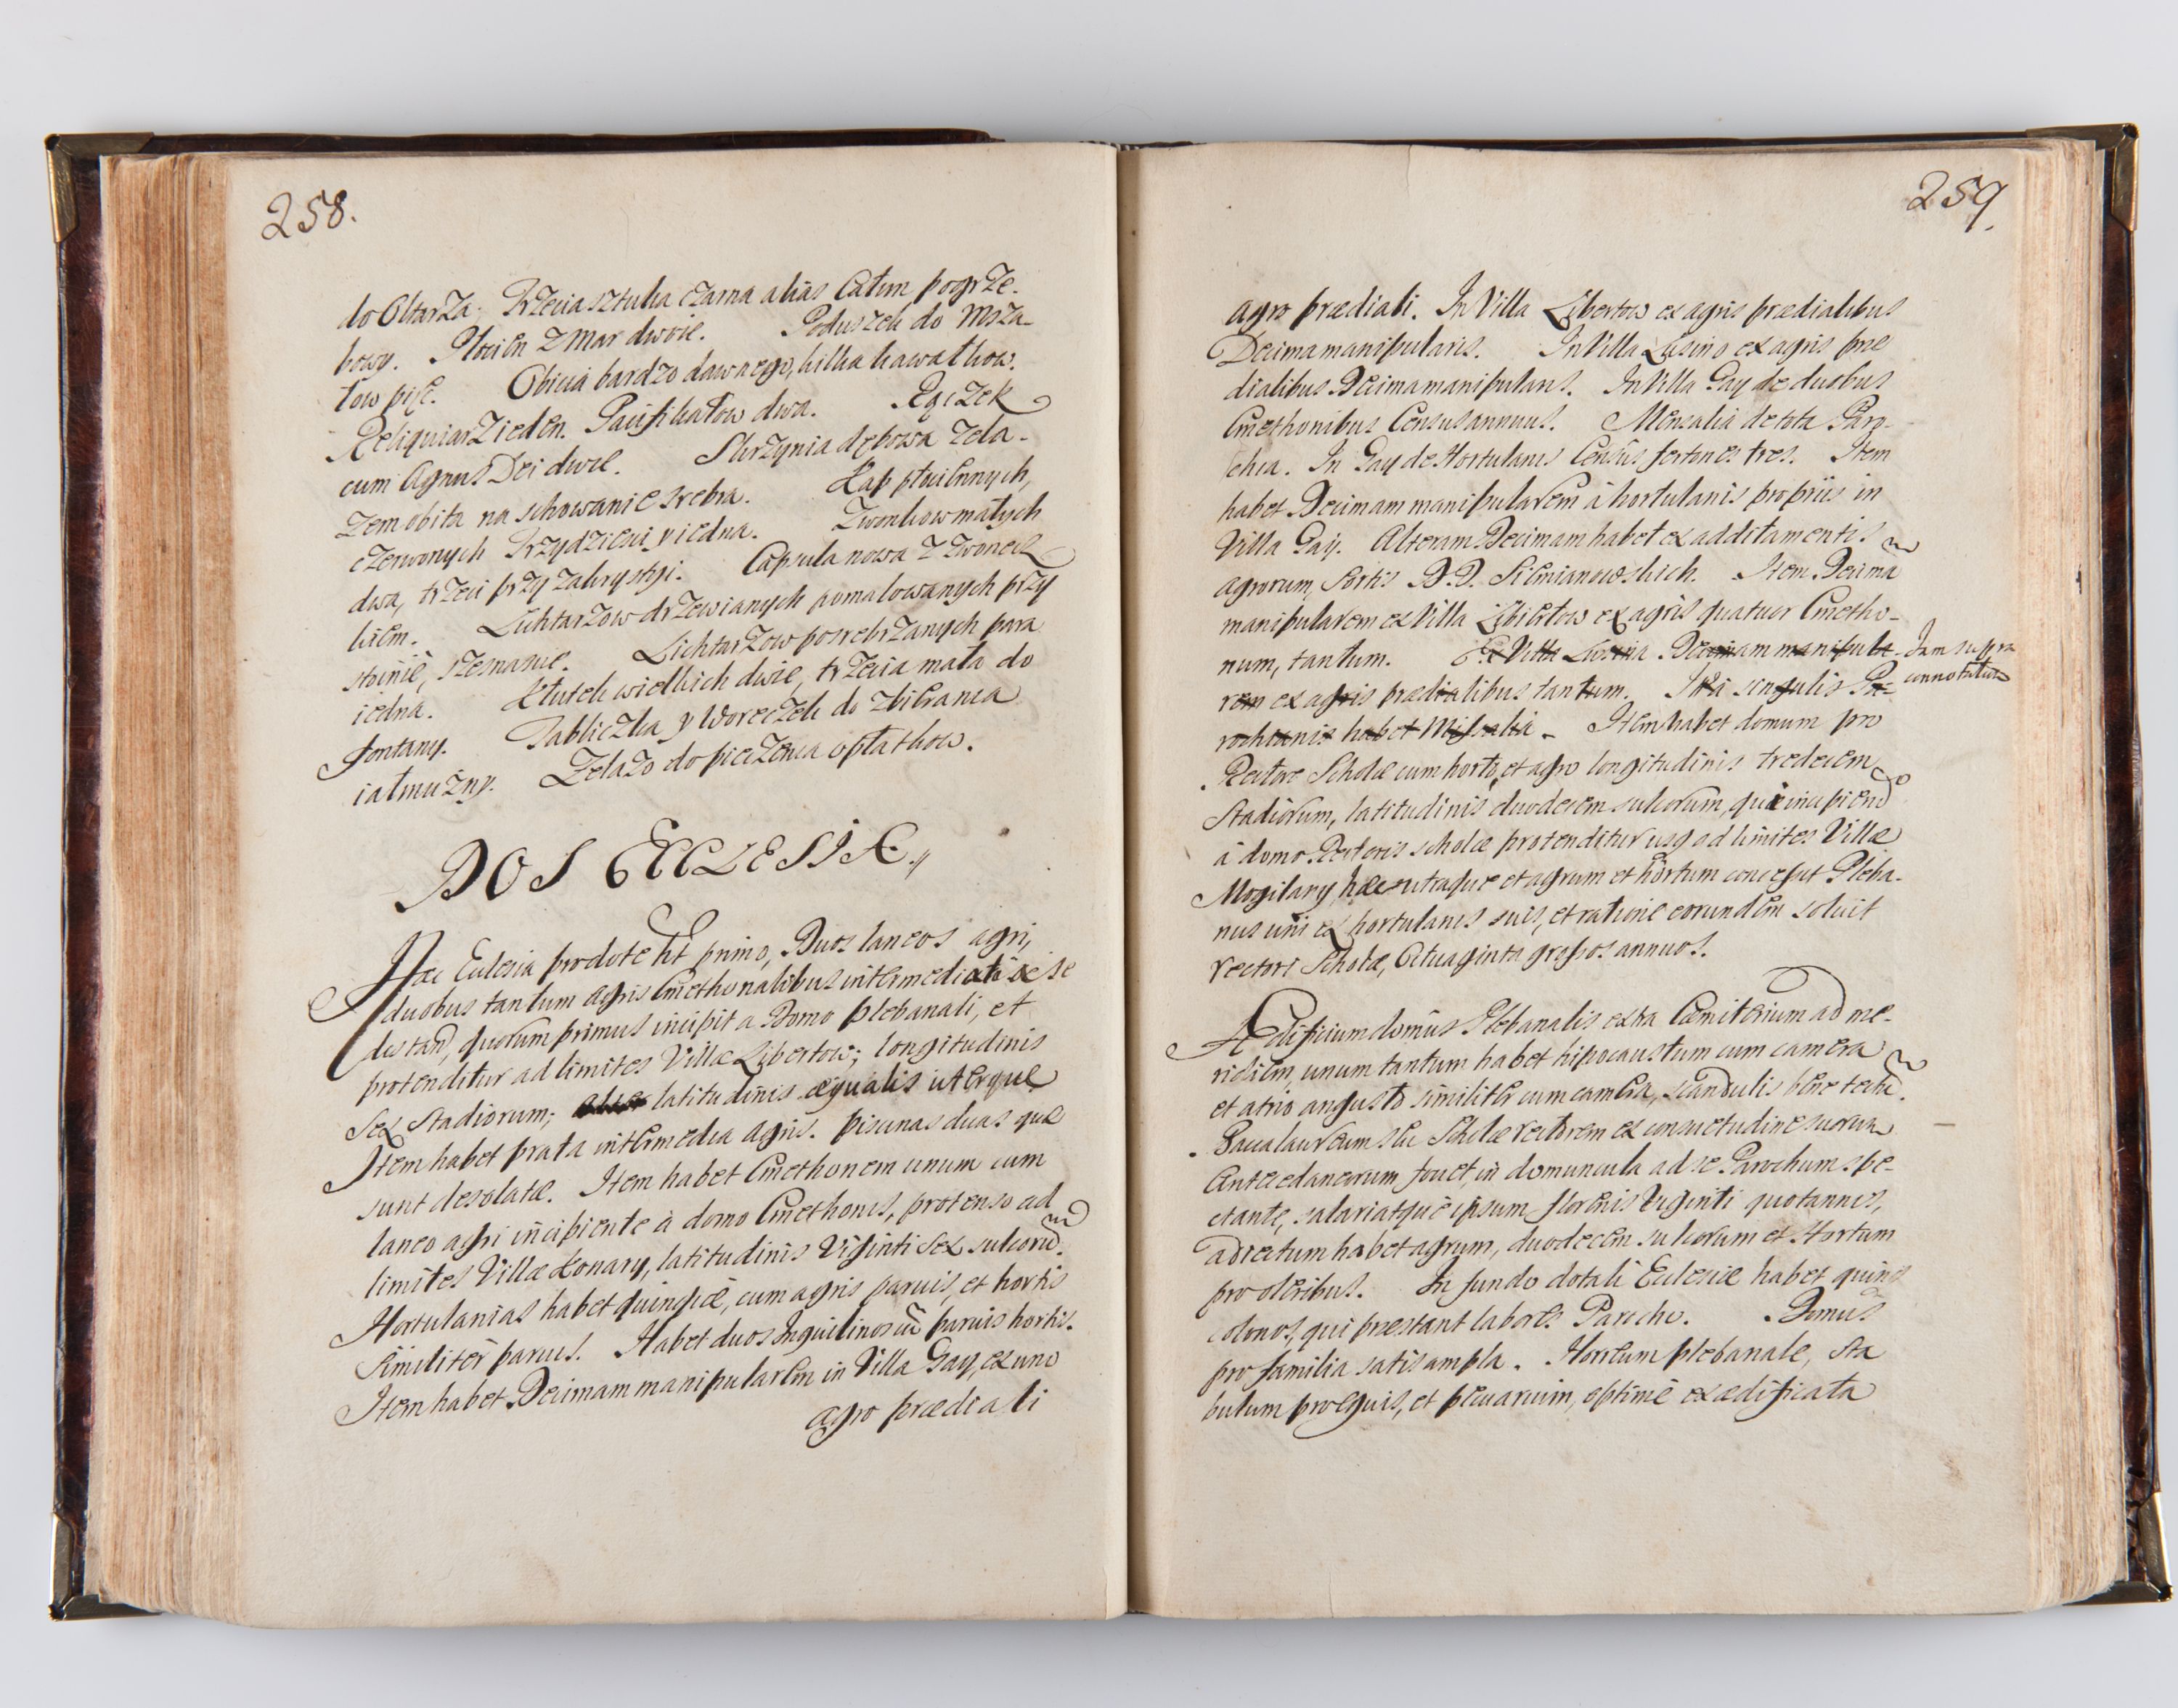 258.
do Oltarza; Trzecia sztuka czarna alias Całun pogrze-
bowy. Płocien z Mar dwoie. Poduszek do Msza-
łow pięć. Obicia bardzo dawnego, kilka kawałkow.
Reliquiarz ieden. Pacifikałow dwa. Pączek
cum Agnus Dei dwie. Skrzynia dębowa żela-
zem obita na schowanie srebra. Kap płuciennych,
czerwonych Trzydzieści y iedna. Zwonkow małych
dwa, trzeci przy Zakrystyi. Capsula nowa z zwonecz
kiem. Lichtarzow drzewianych pomalowanych przy
stoinie, szesnascie. Lichtarzow posrebrzanych para
iedna. Kluczek wielkich dwie, trzecia mała do
fontany. Tabliczka y Woreczek do zbierania
iałmużny. Żelazo do pieczenia opłatkow.
DOS ECCLESIÆ.
Hæc Ecclesia pro dote ht primo, Duos laneos agri,
duobus tantum agris Cmethonalibus intermediatis a se
distan, quorum primus incipit a Domo plebanali, et
protenditur ad limites Villæ Libertow; longitudinis
Sex Stadiorum; latitudinis æqualis uterque
Item habet prata intermedia agris. piscinas duas quæ
sunt desolatæ. Item habet Cmethonem unum cum
laneo agri incipiente à domo Cmethonis, protenso ad
limites Villæ Konary, latitudinis Viginti Sex sulcorũ.
Hortulanias habet quinque, cum agris paruis, et hortis
Similiter paruis. Habet duos Inquilinos cũ paruis hortis.
Item habet Decimam manipularem in Villa Gay, ex uno
agro prædiali
259.
agro prædiali. In Villa Libertow ex agris prædialibus
Decima manipularis. In Villa Lusino ex agris præ
dialibus Decima manipularis. In Villa Gay de duobus
Cmethonibus Census annuus. Mensalia de tota Paro-
chia. In Gay de Hortulanis Census fertones tres. Item
habet Decimam manipularem à hortulanis propriis in
Villa Gay. Alteram Decimam habet ex additamentis
agrorum, Sortis D.D. Siemianowskich. Item Decimã
manipularem ex Villa Libiertow ex agris quatuor Cmetho-
num, tantum. Ex Villa Lusina Decimam manipula-
rem ex agris prædialibus tantum. Ità singulis Pa-
rochianis habet Missalia. Item habet domum pro
Jam supra
connotatum
Rectore Scholæ cum horto, et agro longitudinis tredecem
Stadiorum, latitudinis duodecem sulcorum, qui incipiendo
à domo Rectoris scholæ protenditur usq ad limites Villæ
Mogilany, hæc utraque et agrum et hortum concessit Pleba-
nus uni ex hortulanis suis, et ratione eorundem soluit
rectori Scholæ, Octuaginta grossos annuos.
Ædificium domus Plebanalis extra Cæmiterium ad me-
ridiem, unum tantum habet hipocaustum cum camera
et atrio angusto similiter cum camera, scandulis bene tectũ.
Baccalaureum seu Scholæ rectorem ex consuetudine suorum
Antecedaneorum fouet, in domuncula ad se Parochum spe-
ctante, salariatque ipsum florenis Viginti quotannis,
adiectum habet agrum, duodecem sulcorum et Hortum
pro oleribus. In fundo dotali Ecclesiæ habet quinq
colonos, qui præstant labores Parocho. Domus
pro familia satis ampla. Horreum plebanale, Sta
bulum pro equis, et pecuarium, optimè exædificata